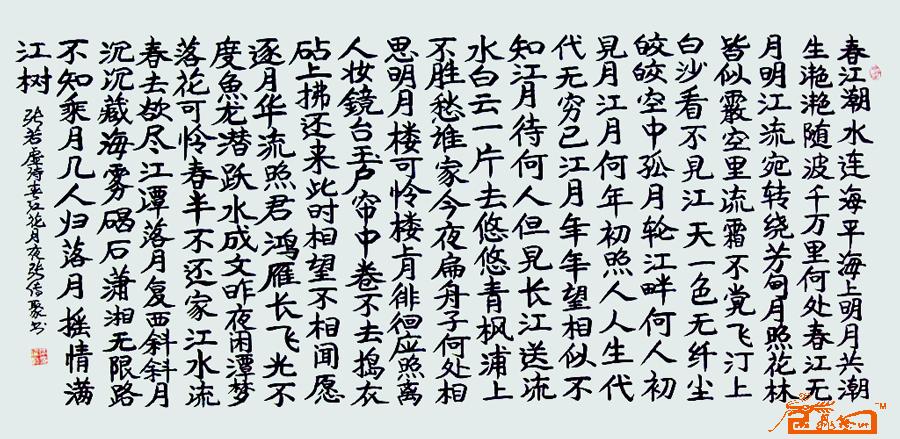 春江潮水连海平海上明月共潮
生滟滟随波千万里何处春江无
月明江流宛转绕芳甸月照花林
皆似霰空里流霜不觉飞汀上
白沙看不见江天一色无纤尘
皎皎空中孤月轮江畔何人初
見月江月何年初照人人生代
代无穷已江月年年望相似不
知江月待何人但見长江送流
水白云一片去悠悠青枫浦上
不胜愁谁家今夜扁舟子何处相
思明月楼可怜楼上月徘徊应照离
人妆鏡台玉户帘中卷不去捣衣
砧上拂还来此时相望不相闻愿
逐月华流照君鸿雁长飞光不
度魚龙潜跃水成文昨夜闲潭梦
落花可怜春半不还家江水流
春去欲尽江潭落月复西斜斜月
沉沉藏海雾碣石潇湘无限路
不知乘月几人归落月摇情满
江树
张若虚诗春江花月夜张传聚书
TM